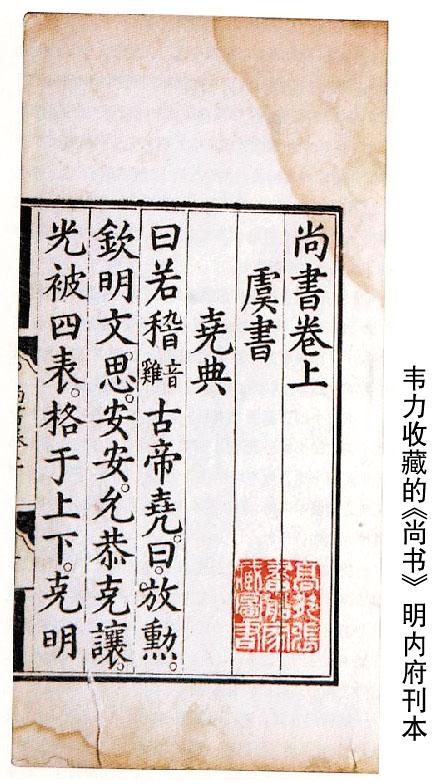 尚書卷上
虞書
堯典
曰若稽音雞古帝堯。曰。放勳。
欽明文。思。安安。允恭克讓。
光被四表。格于上下。克明
藏圖書
韦力收藏的《尚书》 明内府刊本